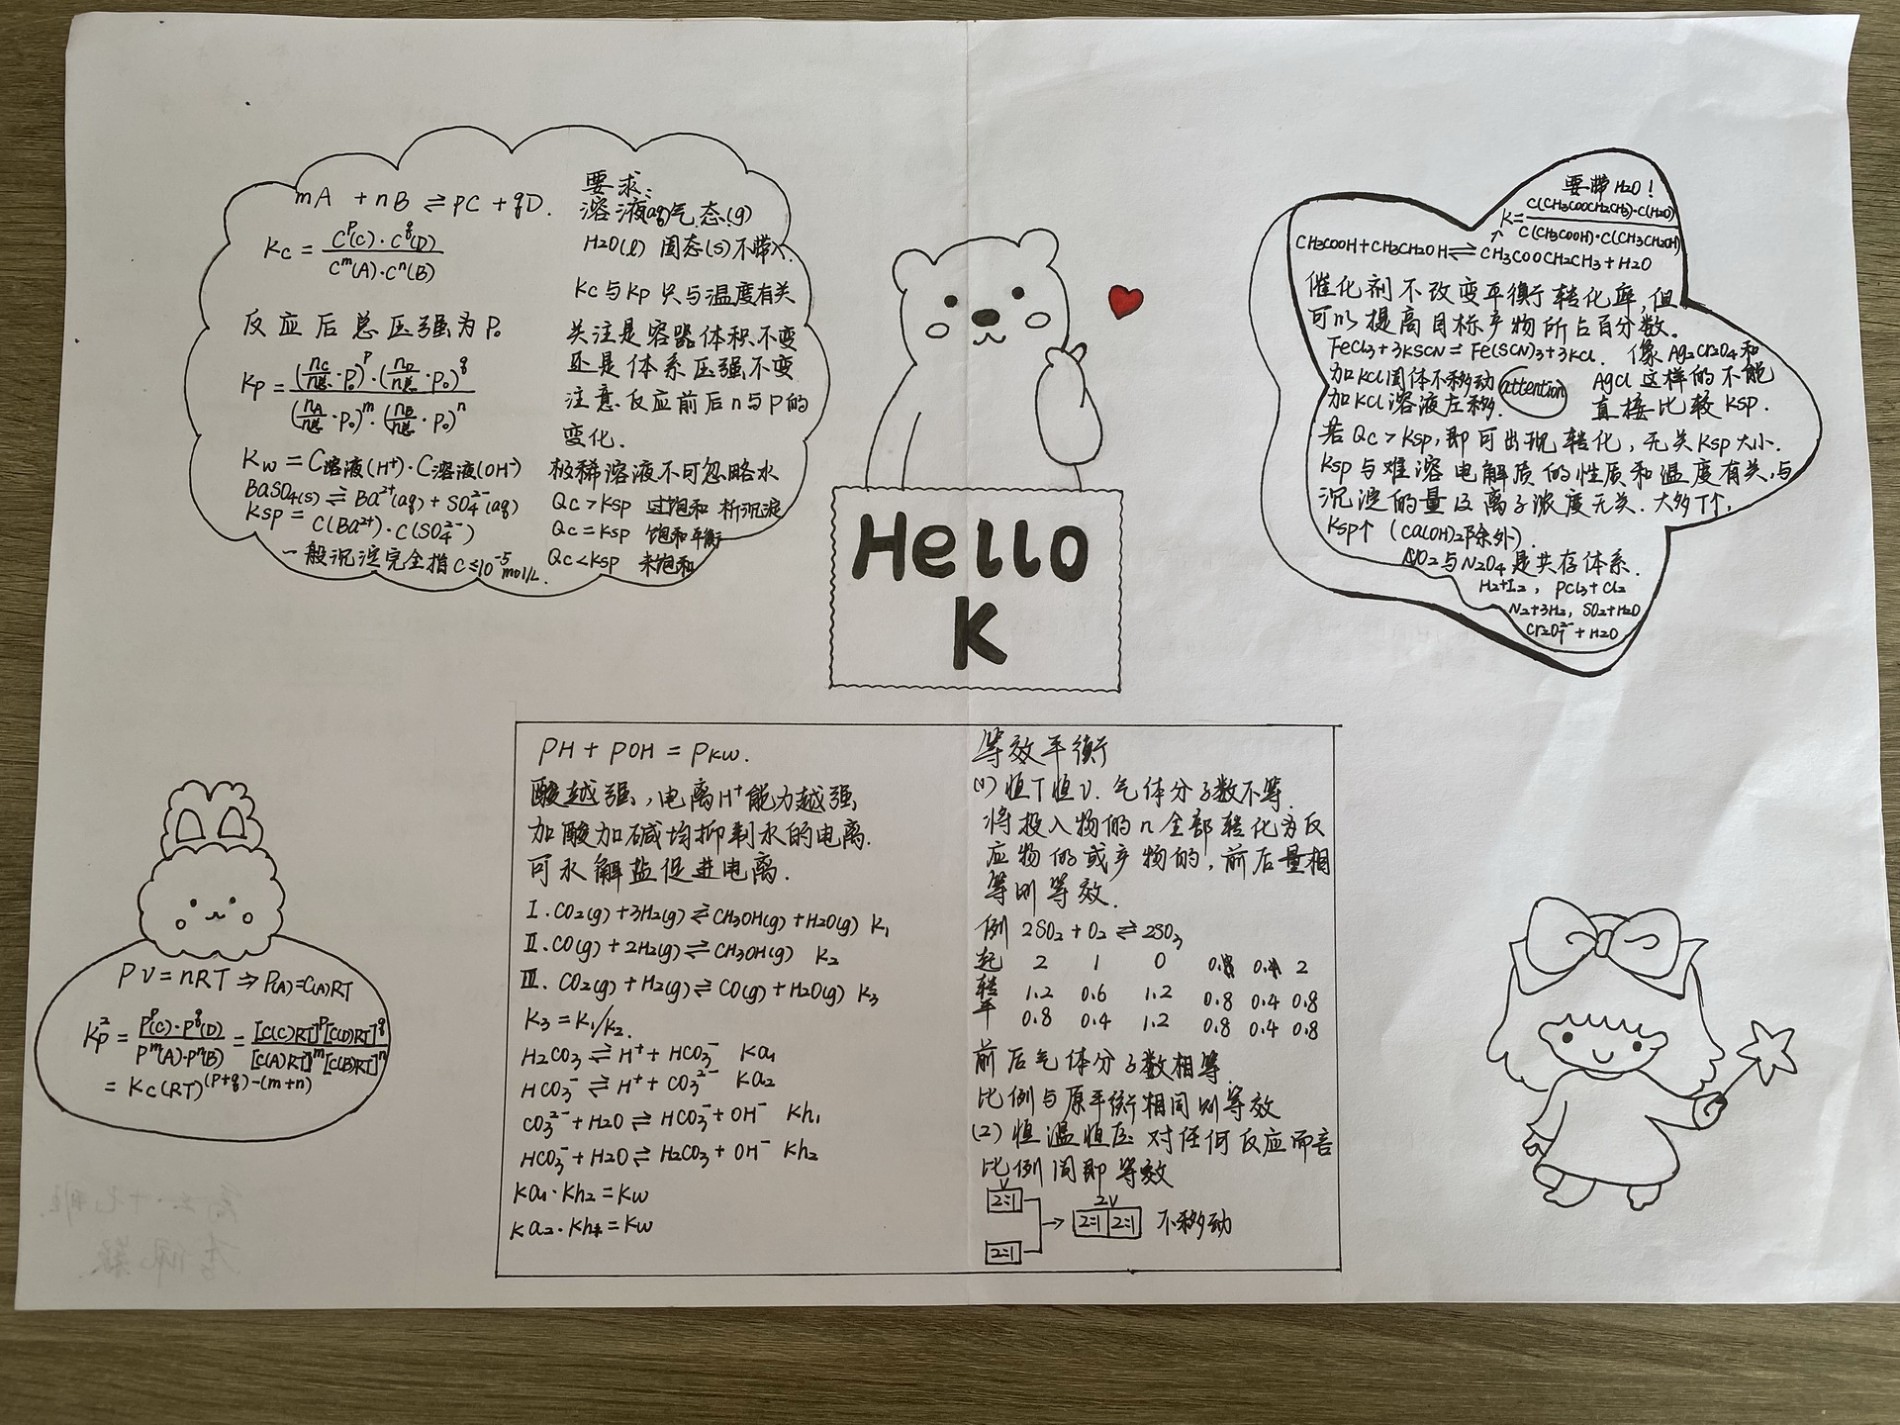 mA + nB ⇌ pC + qD.
Kc = C^p(C)·C^q(D) / C^m(A)·C^n(B)
反应后总压强为P₀
Kp = (nC/n总·P₀)^p·(nD/n总·P₀)^q / (nA/n总·P₀)^m·(nB/n总·P₀)^n
Kw = C溶液(H⁺)·C溶液(OH⁻)
BaSO₄(s) ⇌ Ba²⁺(aq) + SO₄²⁻(aq)
Ksp = C(Ba²⁺)·C(SO₄²⁻)
一般沉淀完全指 C≤10⁻⁵mol/L.
要求:
溶液(aq)气态(g)
H2O(l) 固态(s)不带入.
Kc与Kp只与温度有关
关注是容器体积不变
还是体系压强不变
注意反应前后n与P的
变化.
极稀溶液不可忽略水
Qc>Ksp 过饱和 析沉淀
Qc=Ksp 饱和平衡
Qc<Ksp 未饱和
Hello
K
要带H2O!
K= C(CH3COOCH2CH3)·C(H2O) / C(CH3COOH)·C(CH3CH2OH)
CH3COOH+CH3CH2OH⇌CH3COOCH2CH3+H2O
催化剂不改变平衡转化率,但
可以提高目标产物所占百分数.
FeCl3+3KSCN=Fe(SCN)3+3KCl.
加KCl固体不移动
加KCl溶液左移.
attention
像Ag2CrO4和
AgCl这样的不能
直接比较Ksp.
若Qc>Ksp,即可出现转化,无关Ksp大小.
Ksp与难溶电解质的性质和温度有关,与
沉淀的量及离子浓度无关.大多T↑,
Ksp↑ (Ca(OH)2除外).
NO2与N2O4是共存体系.
H2+I2, PCl3+Cl2
N2+3H2, SO2+H2O
Cr2O7²⁻+H2O
PV=nRT⇒P(A)=C(A)RT
Kp² = P^p(C)·P^q(D) / P^m(A)·P^n(B) = [C(C)RT]^p[C(D)RT]^q / [C(A)RT]^m[C(B)RT]^n
= Kc(RT)^(p+q)-(m+n)
PH + POH = PKw.
酸越强,电离H⁺能力越强
加酸加碱均抑制水的电离.
可水解盐促进电离.
I.CO2(g)+3H2(g)⇌CH3OH(g)+H2O(g) K1
II.CO(g)+2H2(g)⇌CH3OH(g) K2
III.CO2(g)+H2(g)⇌CO(g)+H2O(g) K3
K3=K1/K2.
H2CO3⇌H⁺+HCO3⁻ Ka1
HCO3⁻⇌H⁺+CO3²⁻ Ka2
CO3²⁻+H2O⇌HCO3⁻+OH⁻ Kh1
HCO3⁻+H2O⇌H2CO3+OH⁻ Kh2
Ka1·Kh2=Kw
Ka2·Kh1=Kw
等效平衡
(1)恒T恒V.气体分子数不等.
将投入物的n全部转化为反
应物的或产物的,前后量相
等则等效.
例 2SO2+O2⇌2SO3
起 2 1 0 2
转 1.2 0.6 1.2 0.8 0.4 0.8
平 0.8 0.4 1.2 0.8 0.4 0.8
前后气体分子数相等.
比例与原平衡相同则等效
(2)恒温恒压 对任何反应而言
比例同即等效
V
2:1
2V
2:1 2:1 不移动
2:1